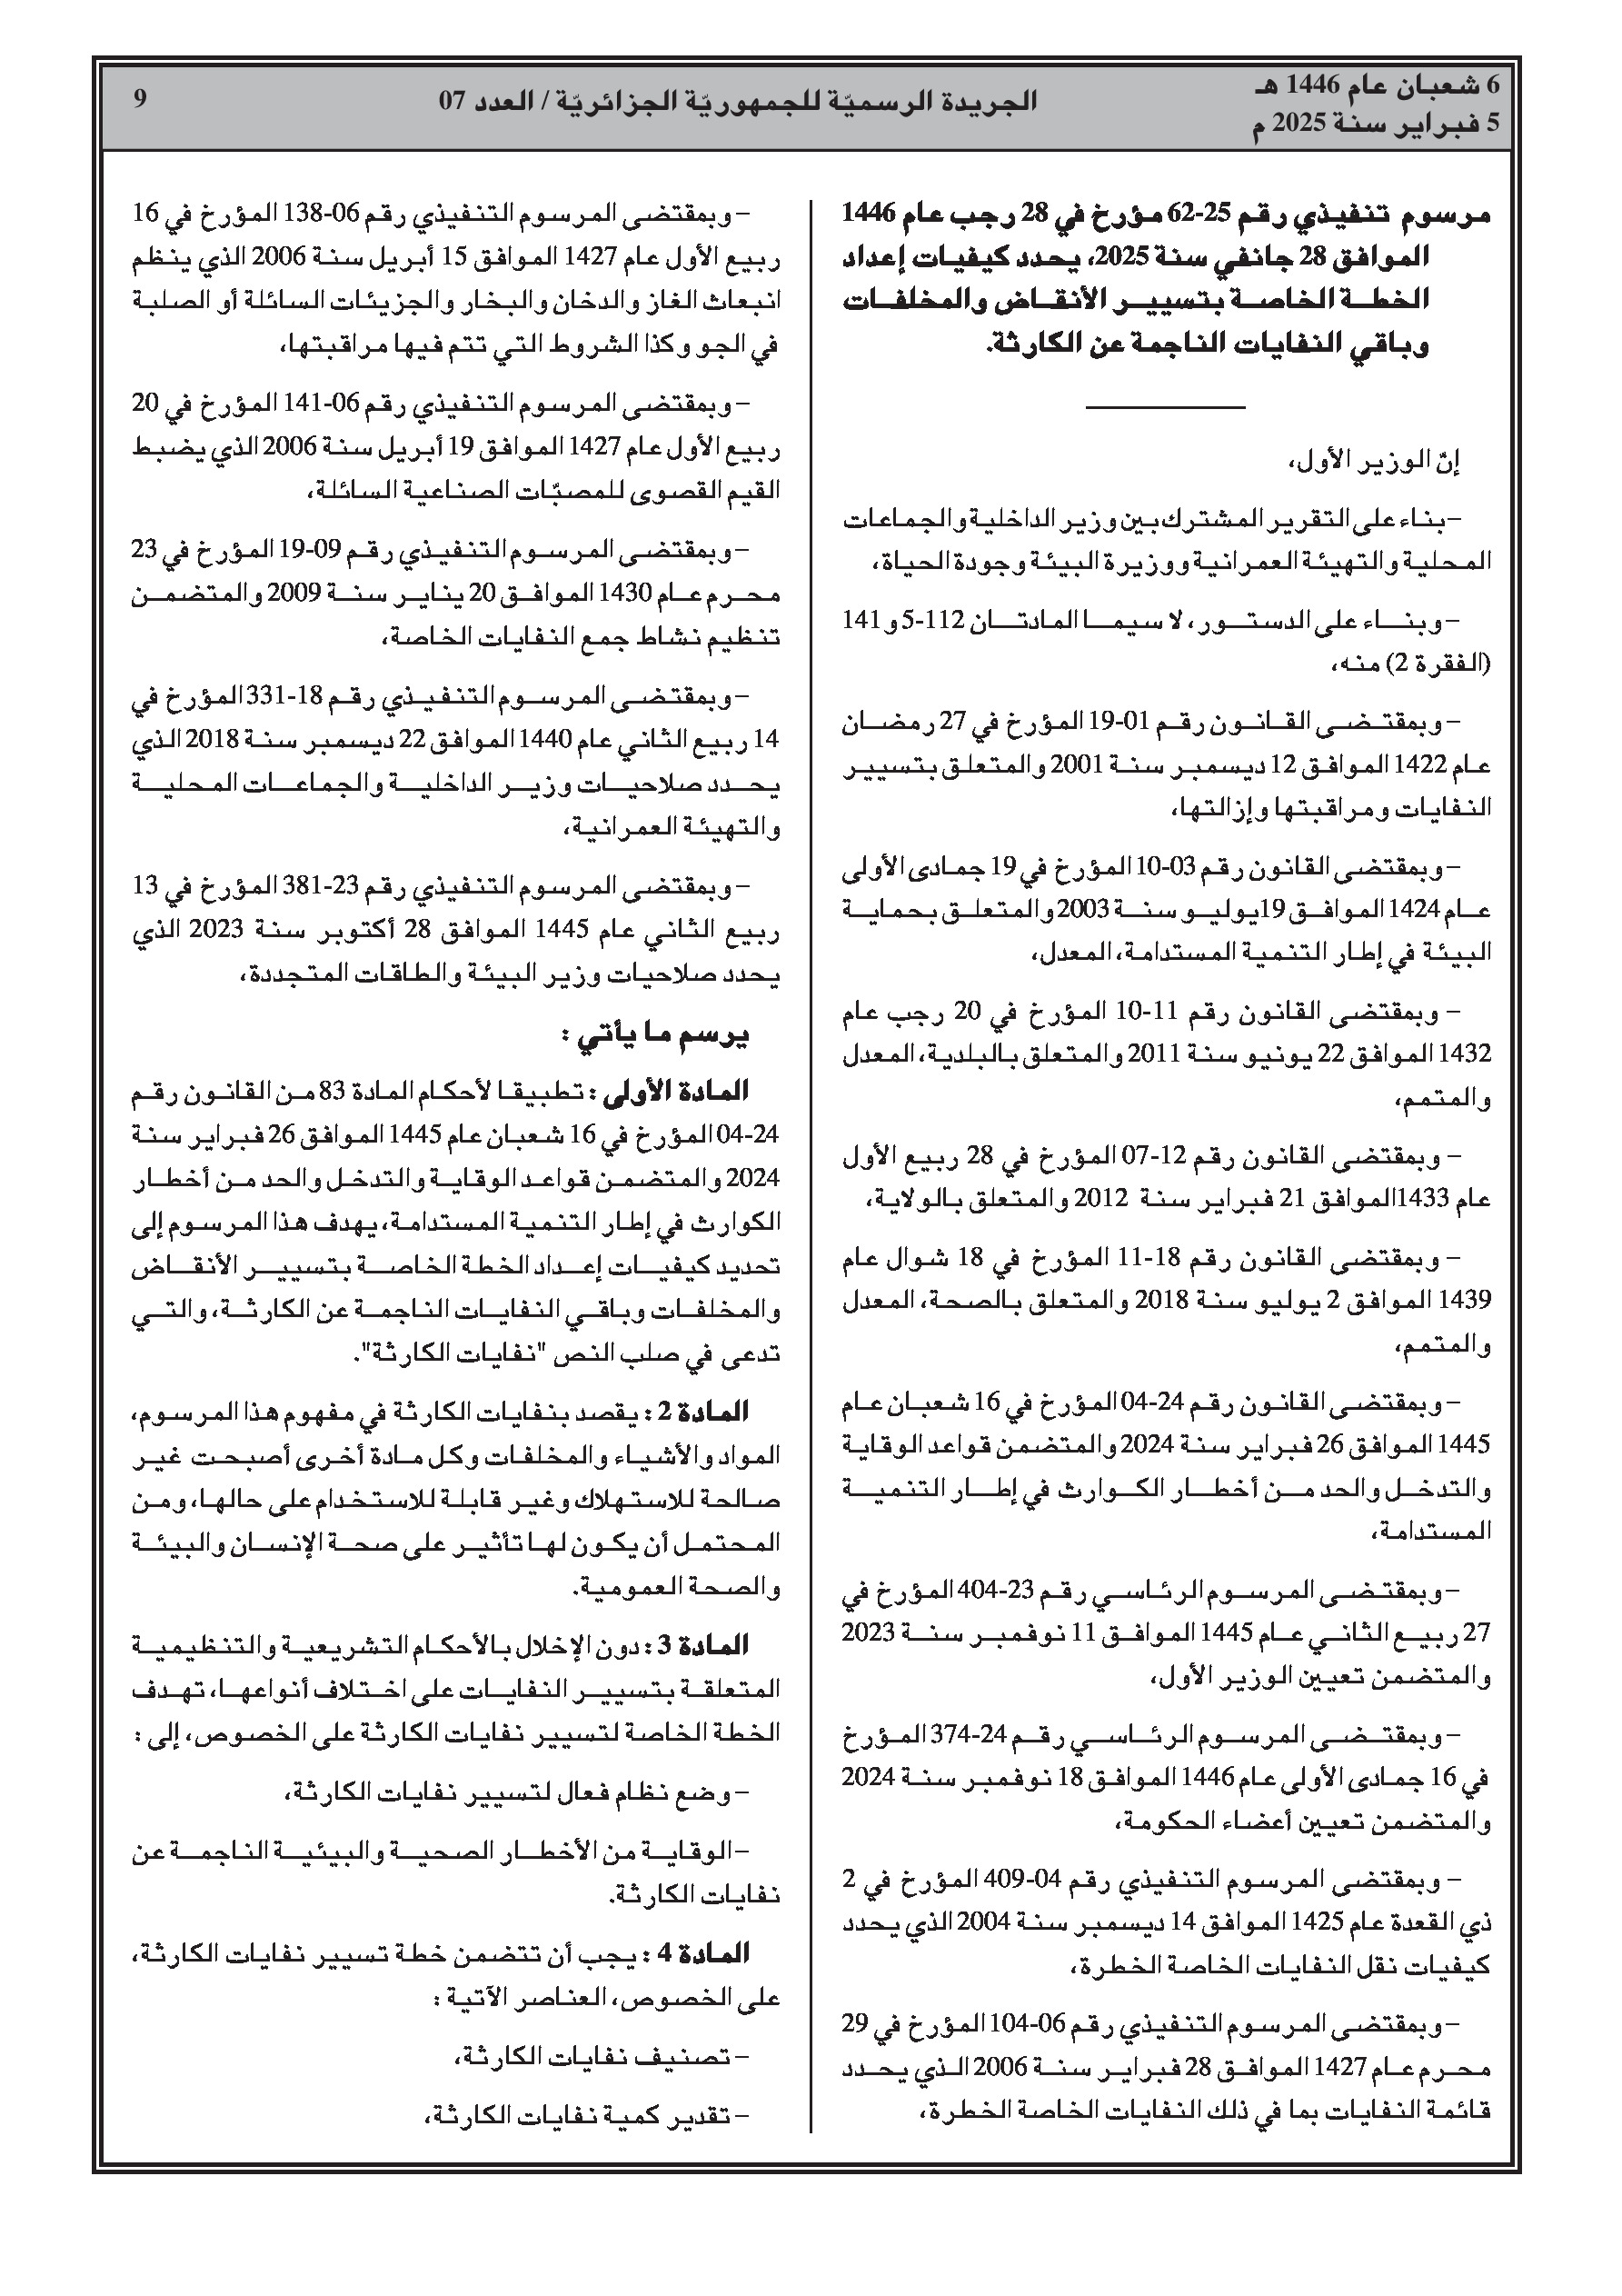 6 شعبان عام 1446 هـ
5 فبراير سنة 2025 م
الجريدة الرسميّة للجمهوريّة الجزائريّة / العدد 07
9
مرسوم تنفيذي رقم 25-62 مؤرخ في 28 رجب عام 1446
الموافق 28 جانفي سنة 2025، يحدد كيفيات إعداد
الخطة الخاصة بتسيير الأنقاض والمخلفات
وباقي النفايات الناجمة عن الكارثة.
إنّ الوزير الأول،
– بناء على التقرير المشترك بين وزير الداخلية والجماعات
المحلية والتهيئة العمرانية ووزيرة البيئة وجودة الحياة،
– وبناء على الدستور، لا سيما المادتان 112-5 و141
(الفقرة 2) منه،
– وبمقتضى القانون رقم 01-19 المؤرخ في 27 رمضان
عام 1422 الموافق 12 ديسمبر سنة 2001 والمتعلق بتسيير
النفايات ومراقبتها وإزالتها،
– وبمقتضى القانون رقم 03-10 المؤرخ في 19 جمادى الأولى
عام 1424 الموافق 19 يوليو سنة 2003 والمتعلق بحماية
البيئة في إطار التنمية المستدامة، المعدل،
– وبمقتضى القانون رقم 11-10 المؤرخ في 20 رجب عام
1432 الموافق 22 يونيو سنة 2011 والمتعلق بالبلدية، المعدل
والمتمم،
– وبمقتضى القانون رقم 12-07 المؤرخ في 28 ربيع الأول
عام 1433 الموافق 21 فبراير سنة 2012 والمتعلق بالولاية،
– وبمقتضى القانون رقم 18-11 المؤرخ في 18 شوال عام
1439 الموافق 2 يوليو سنة 2018 والمتعلق بالصحة، المعدل
والمتمم،
– وبمقتضى القانون رقم 24-04 المؤرخ في 16 شعبان عام
1445 الموافق 26 فبراير سنة 2024 والمتضمن قواعد الوقاية
والتدخل والحد من أخطار الكوارث في إطار التنمية
المستدامة،
– وبمقتضى المرسوم الرئاسي رقم 23-404 المؤرخ في
27 ربيع الثاني عام 1445 الموافق 11 نوفمبر سنة 2023
والمتضمن تعيين الوزير الأول،
– وبمقتضى المرسوم الرئاسي رقم 24-374 المؤرخ
في 16 جمادى الأولى عام 1446 الموافق 18 نوفمبر سنة 2024
والمتضمن تعيين أعضاء الحكومة،
– وبمقتضى المرسوم التنفيذي رقم 04-409 المؤرخ في 2
ذي القعدة عام 1425 الموافق 14 ديسمبر سنة 2004 الذي يحدد
كيفيات نقل النفايات الخاصة الخطرة،
– وبمقتضى المرسوم التنفيذي رقم 06-104 المؤرخ في 29
محرم عام 1427 الموافق 28 فبراير سنة 2006 الذي يحدد
قائمة النفايات بما في ذلك النفايات الخاصة الخطرة،
– وبمقتضى المرسوم التنفيذي رقم 06-138 المؤرخ في 16
ربيع الأول عام 1427 الموافق 15 أبريل سنة 2006 الذي ينظم
انبعاث الغاز والدخان والبخار والجزيئات السائلة أو الصلبة
في الجو وكذا الشروط التي تتم فيها مراقبتها،
– وبمقتضى المرسوم التنفيذي رقم 06-141 المؤرخ في 20
ربيع الأول عام 1427 الموافق 19 أبريل سنة 2006 الذي يضبط
القيم القصوى للمصبّات الصناعية السائلة،
– وبمقتضى المرسوم التنفيذي رقم 09-19 المؤرخ في 23
محرم عام 1430 الموافق 20 يناير سنة 2009 والمتضمن
تنظيم نشاط جمع النفايات الخاصة،
– وبمقتضى المرسوم التنفيذي رقم 18-331 المؤرخ في
14 ربيع الثاني عام 1440 الموافق 22 ديسمبر سنة 2018 الذي
يحدد صلاحيات وزير الداخلية والجماعات المحلية
والتهيئة العمرانية،
– وبمقتضى المرسوم التنفيذي رقم 23-381 المؤرخ في 13
ربيع الثاني عام 1445 الموافق 28 أكتوبر سنة 2023 الذي
يحدد صلاحيات وزير البيئة والطاقات المتجددة،
يرسم ما يأتي :
المادة الأولى : تطبيقا لأحكام المادة 83 من القانون رقم
24-04 المؤرخ في 16 شعبان عام 1445 الموافق 26 فبراير سنة
2024 والمتضمن قواعد الوقاية والتدخل والحد من أخطار
الكوارث في إطار التنمية المستدامة، يهدف هذا المرسوم إلى
تحديد كيفيات إعداد الخطة الخاصة بتسيير الأنقاض
والمخلفات وباقي النفايات الناجمة عن الكارثة، والتي
تدعى في صلب النص "نفايات الكارثة".
المادة 2 : يقصد بنفايات الكارثة في مفهوم هذا المرسوم،
المواد والأشياء والمخلفات وكل مادة أخرى أصبحت غير
صالحة للاستهلاك وغير قابلة للاستخدام على حالها، ومن
المحتمل أن يكون لها تأثير على صحة الإنسان والبيئة
والصحة العمومية.
المادة 3 : دون الإخلال بالأحكام التشريعية والتنظيمية
المتعلقة بتسيير النفايات على اختلاف أنواعها، تهدف
الخطة الخاصة لتسيير نفايات الكارثة على الخصوص، إلى :
– وضع نظام فعال لتسيير نفايات الكارثة،
– الوقاية من الأخطار الصحية والبيئية الناجمة عن
نفايات الكارثة.
المادة 4 : يجب أن تتضمن خطة تسيير نفايات الكارثة،
على الخصوص، العناصر الآتية :
– تصنيف نفايات الكارثة،
– تقدير كمية نفايات الكارثة،